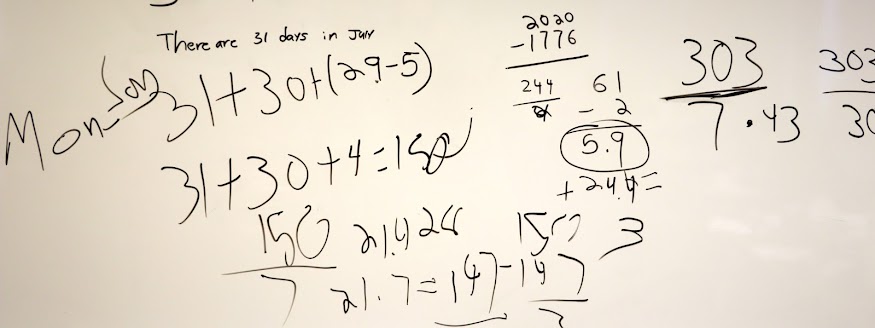 There are 31 days in July
Monday
31+30+(29-5)
31+30+4=150
150
7
21.428
21.7=147
150
-147
3
3
2020
-1776
244
61
- 2
5.9
+244=
303
7.43
303
30